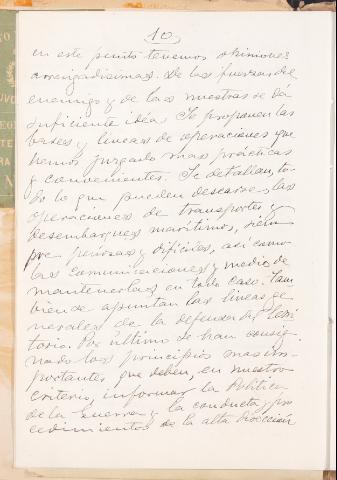 10
en este punto tenemos opiniones
arraigadísimas. De las fuerzas del
enemigo y de las nuestras se dá
suficiente idea. Se proponen las
bases y lineas de operaciones que
hemos juzgado mas prácticas
y convenientes. Se detallan, to-
do lo que pueden desearse, las
operaciones de transportes y
desembarques marítimos, siem
pre penosas y difíciles, así como
las comunicaciones y medio de
mantenerlas en todo caso. Tam
bien se apuntan las lineas ge
nerales de la defensa del Terri
torio. Por último se han consig
nado los principios mas im-
portantes que deben, en nuestro
criterio, informar la Política
de la Guerra y la conducta y pro
cedimientos de la alta dirección